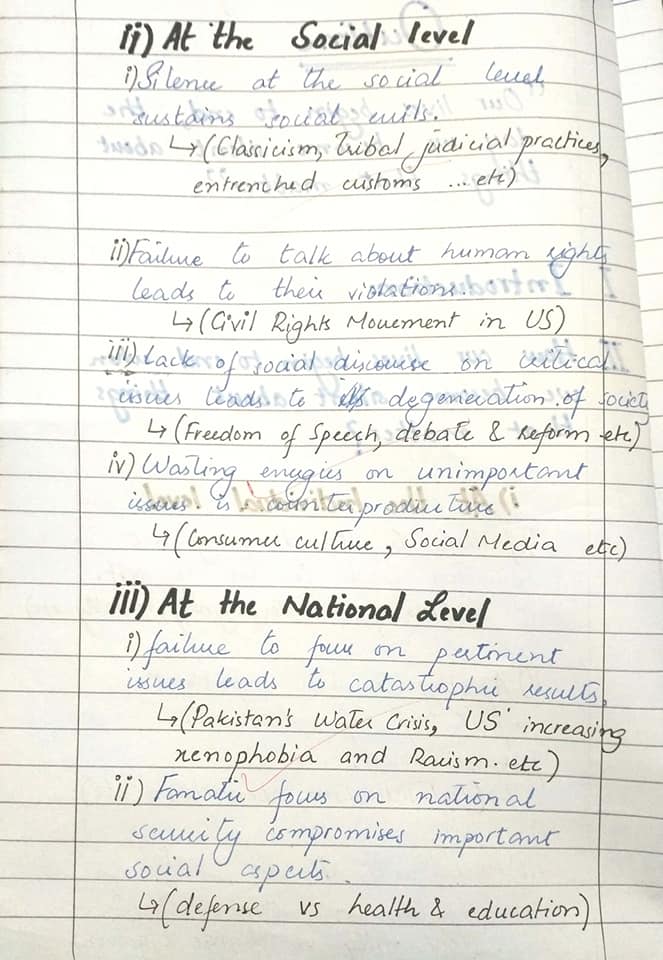 ii) At the Social level
i) Silence at the social level
sustains social evils.
↳ (Classicism, Tribal judicial practices,
entrenched customs ... etc)
ii) Failure to talk about human rights
leads to their violations.
↳ (Civil Rights Movement in US)
iii) Lack of social discourse on critical
issues leads to its degeneration of society
↳ (Freedom of Speech, debate & reform etc)
iv) Wasting energies on unimportant
issues is counterproductive
↳ (Consumer culture, Social Media etc)
iii) At the National Level
i) failure to focus on pertinent
issues leads to catastrophic results,
↳ (Pakistan's Water Crisis, US' increasing
xenophobia and Racism. etc)
ii) Fanatic focus on national
security compromises important
social aspects.
↳ (defense vs health & education)